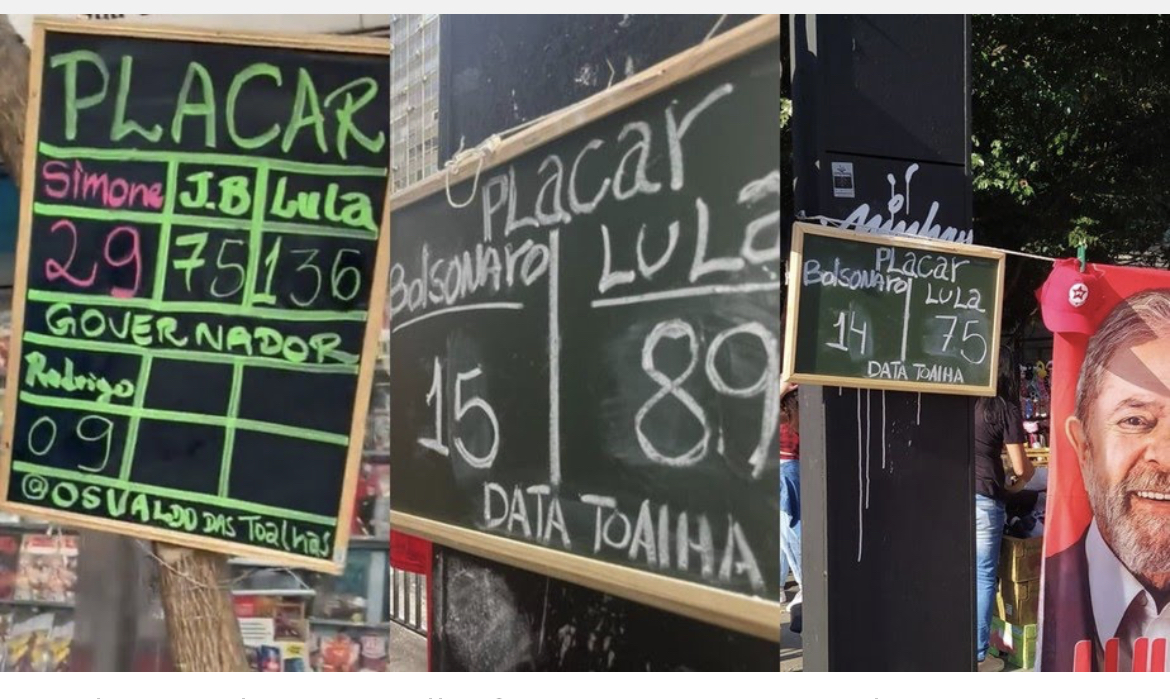 PLACAR
Simone J.B Lula
29 75 136
GOVERNADOR
Rodrigo
09
@OSVALDO DAS Toalhas
PLacar
Bolsonaro LULa
15 89
DATA TOAlHA
PLacar
Bolsonaro LULa
14 75
DATA TOAlHA